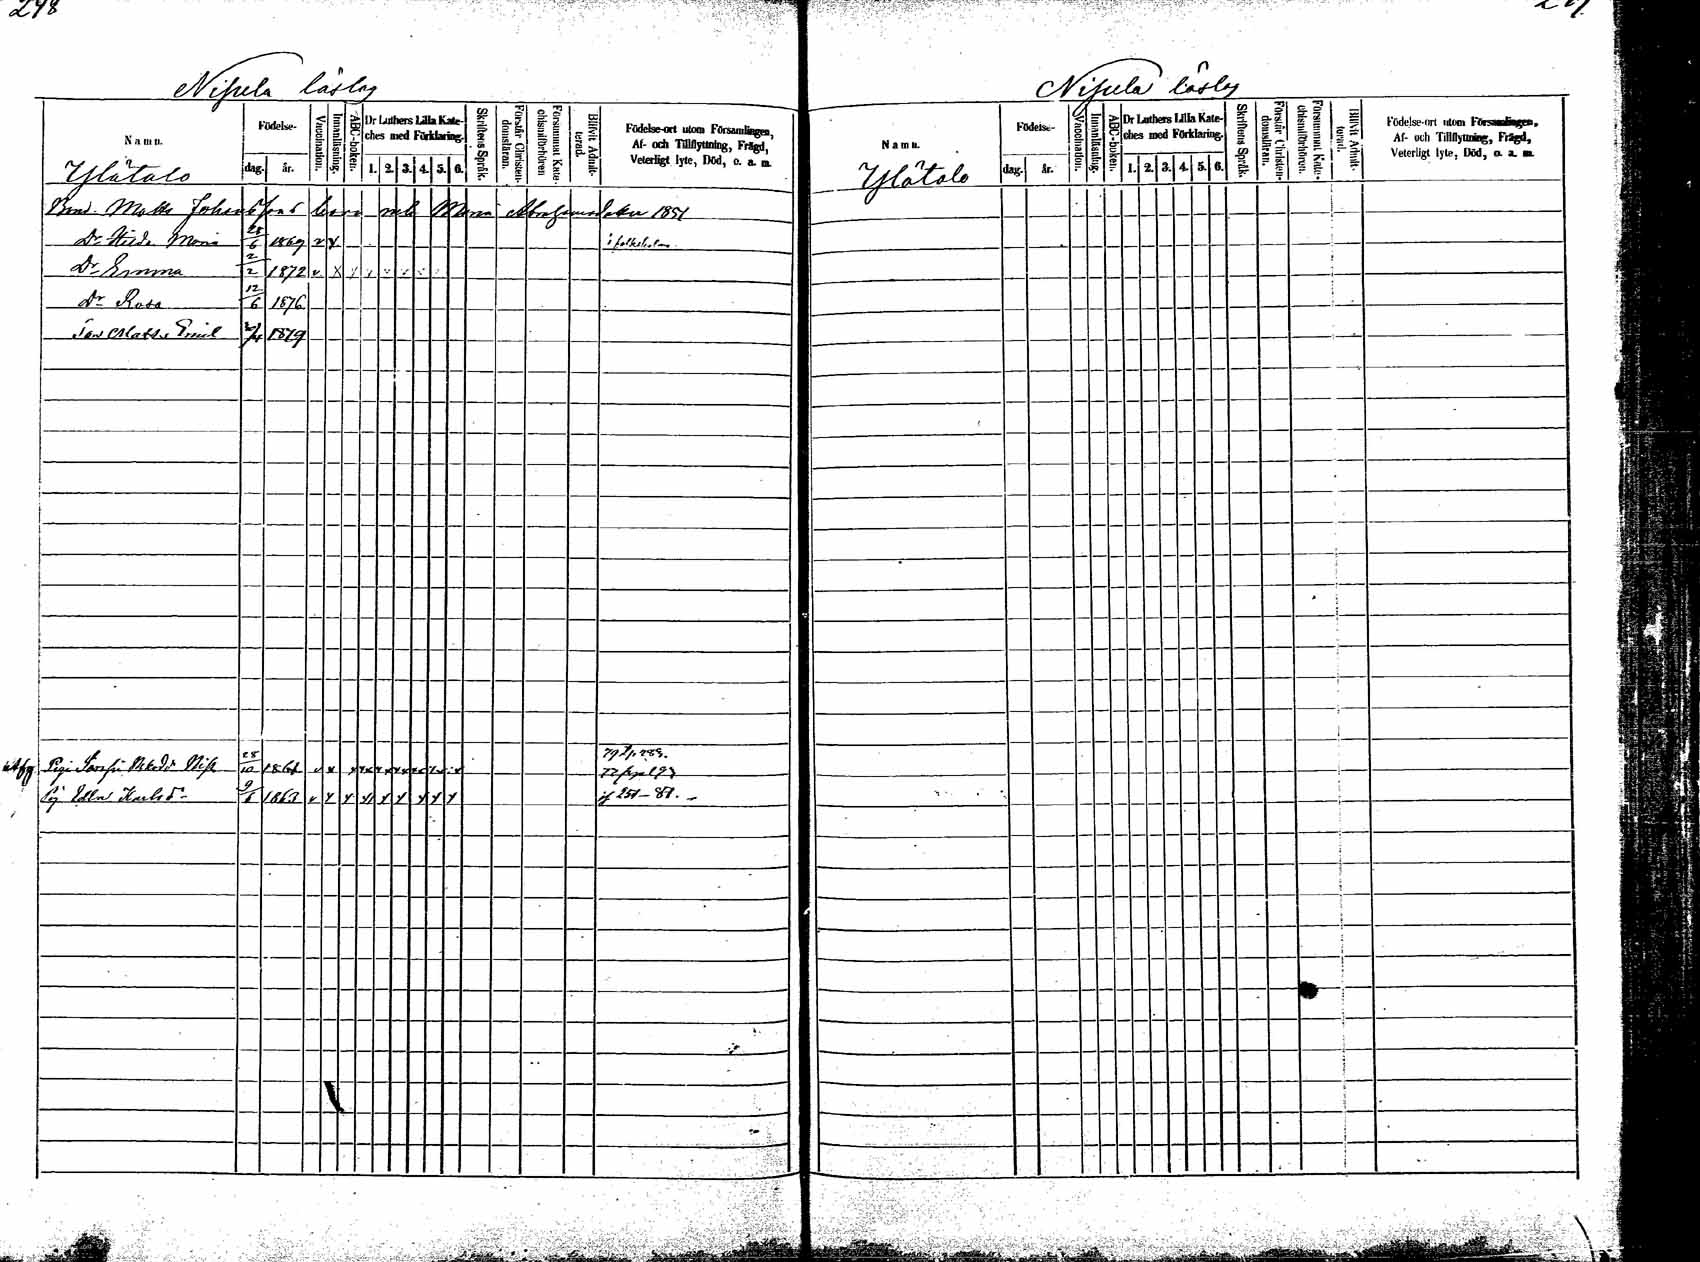 248
Nisula läslag
Namn.
Födelse-
dag.
år.
Vaccination.
Innanläsning.
ABC-boken.
Dr Luthers Lilla Kate-
ches med Förklaring.
1. 2. 3. 4. 5. 6.
Skriftens Språk.
Förstår Christen-
domsläran.
Försummat Kate-
chismiförhören
Blifvit Admit-
terad.
Födelse-ort utom Församlingen,
Af- och Tillflyttning, Frägd,
Veterligt lyte, Död, o. a. m.
Ylätalo
Bond. Matts Johanssons barn med Maria Abrahamsdoter 1851
Dr Hilda Maria 28/6 1869 v x i folkskolan
Dr Emma 2/2 1872 v x
Dr Rosa 12/6 1876
Son Matts Emil 1879
28/10 1861 v x
Edla Karlsdr 9/6 1863 v x x x x x x x x
Nisula läslag
Namn.
Födelse-
dag.
år.
Vaccination.
Innanläsning.
ABC-boken.
Dr Luthers Lilla Kate-
ches med Förklaring.
1. 2. 3. 4. 5. 6.
Skriftens Språk.
Förstår Christen-
domsläran.
Försummat Kate-
chismiförhören.
Blifvit Admit-
terad.
Födelse-ort utom Församlingen,
Af- och Tillflyttning, Frägd,
Veterligt lyte, Död, o. a. m.
Ylätalo